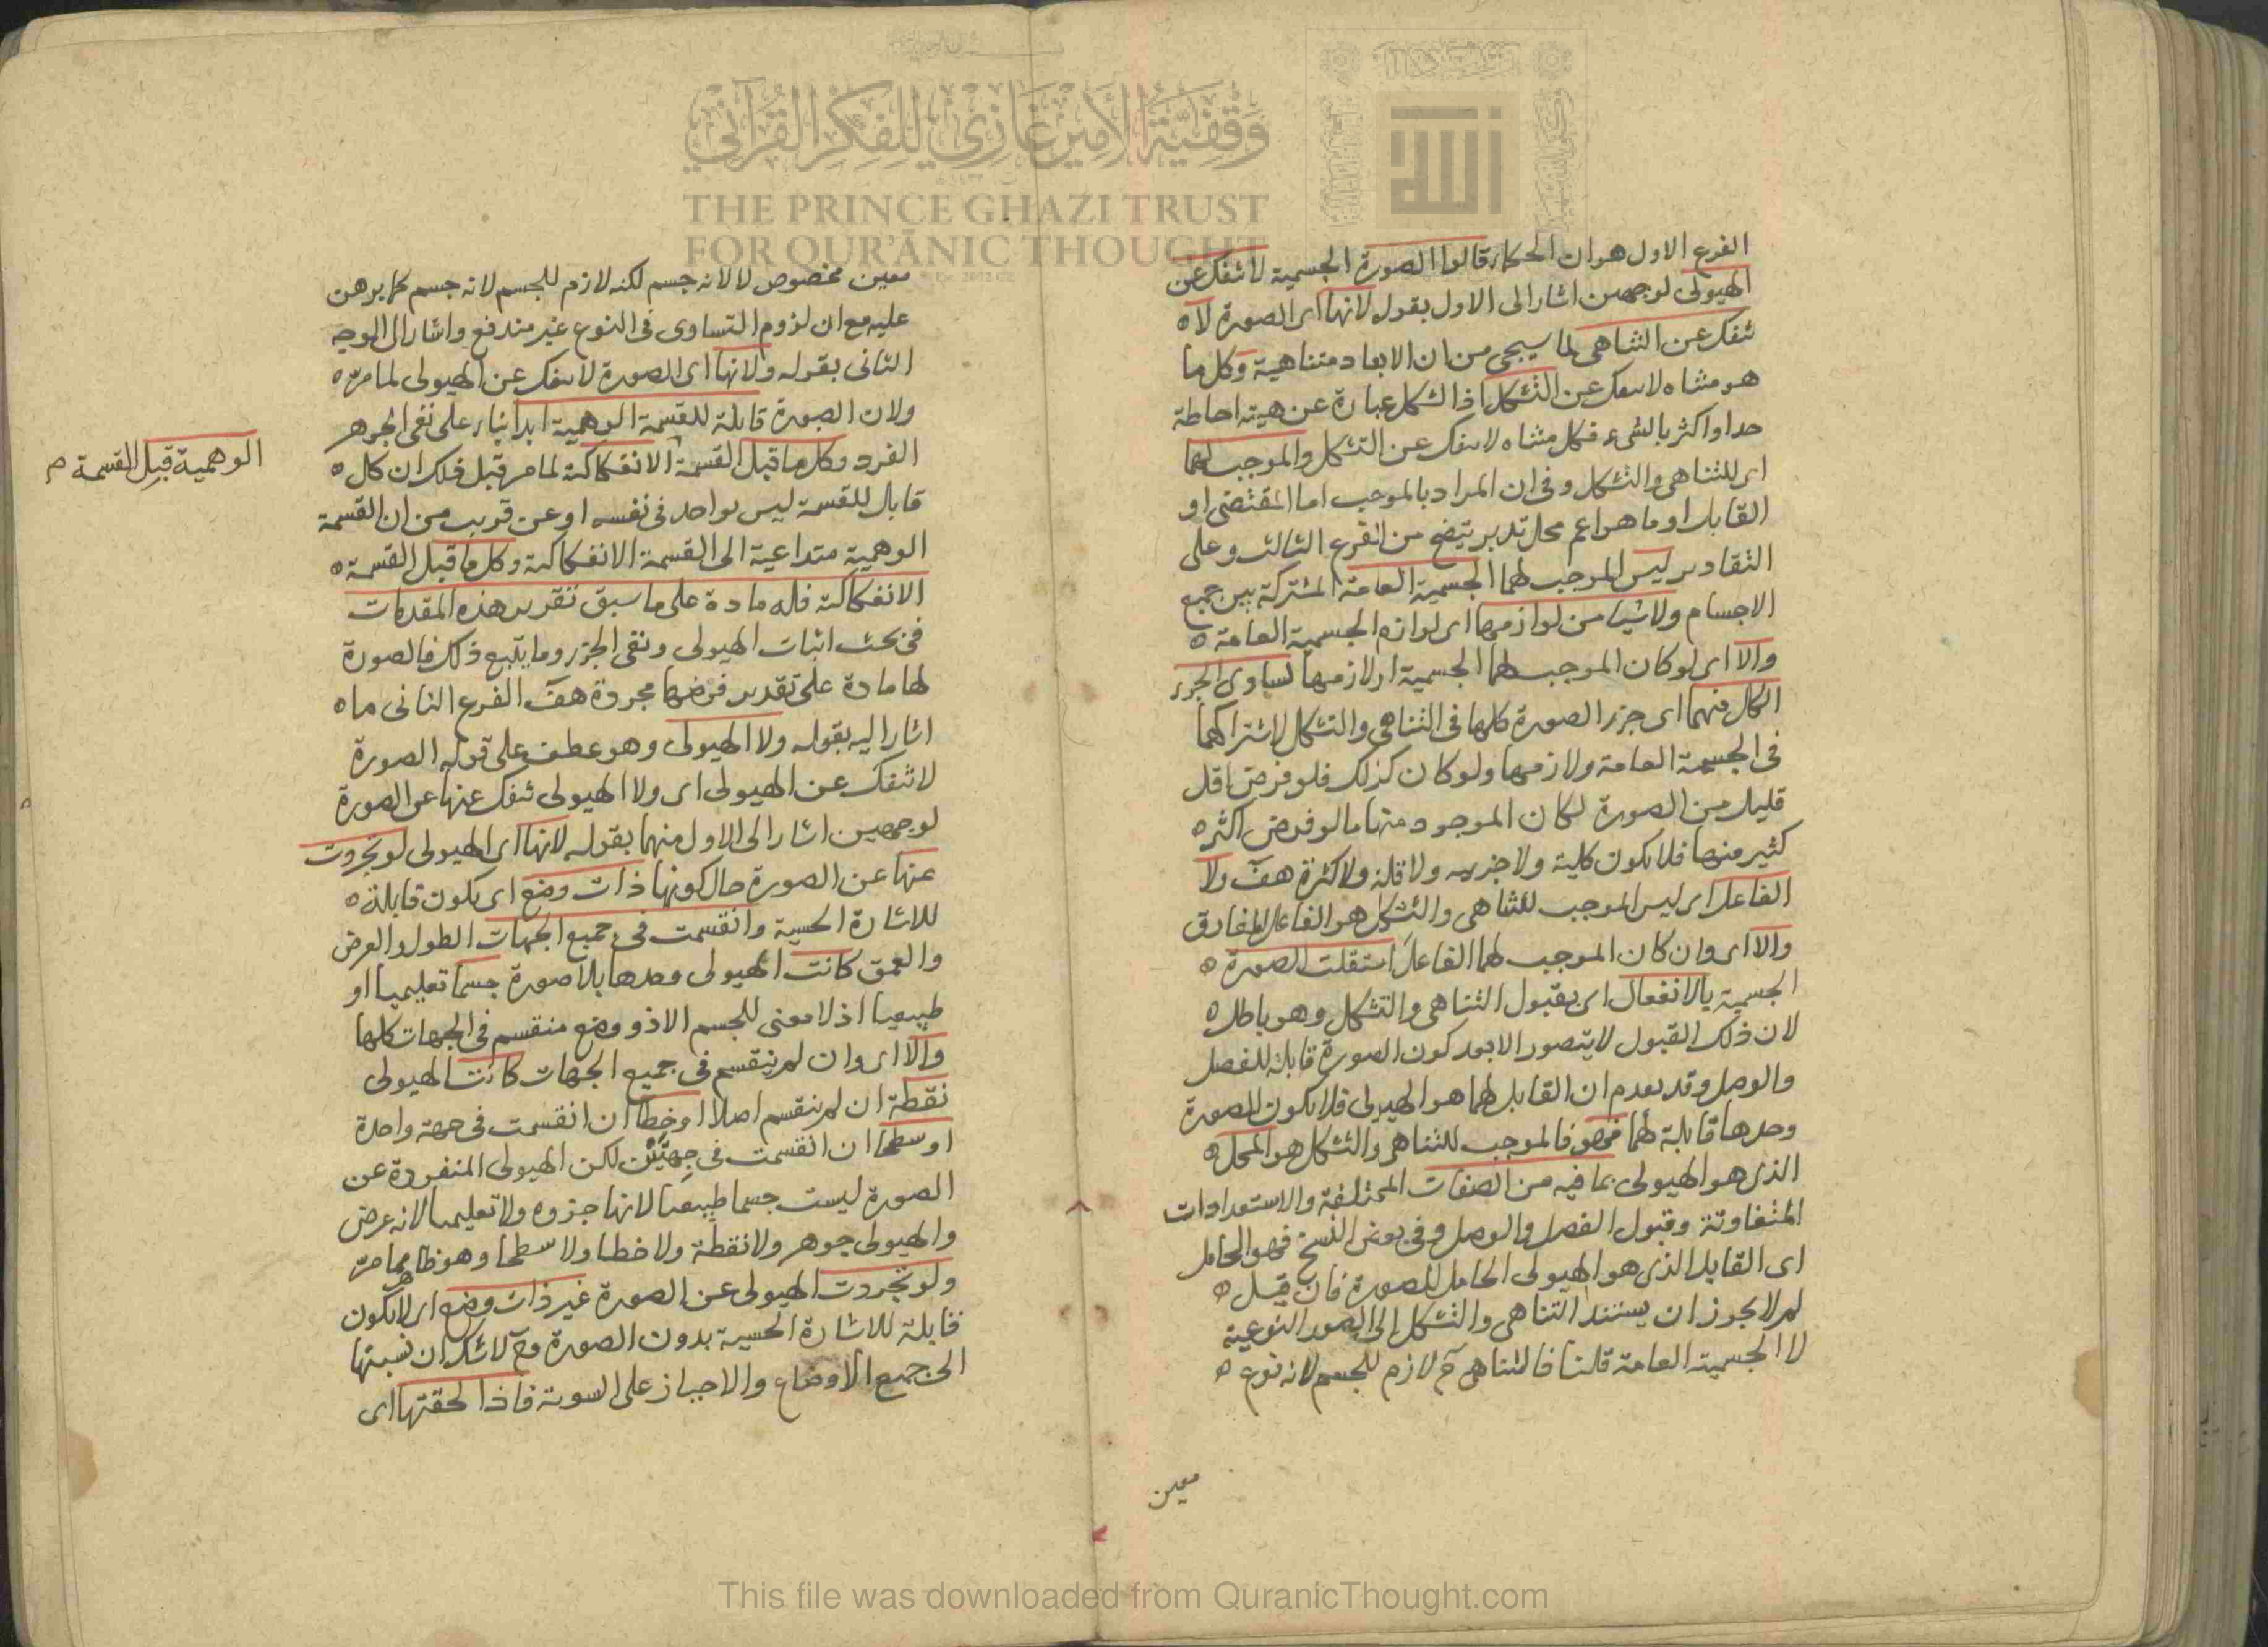 وقفية الأمير غازي للفكر القرآني
THE PRINCE GHAZI TRUST
FOR QUR'ĀNIC THOUGHT
الفرع الاول هو ان الحكماء قالوا الصورة الجسمية لا تنفك عن
الهيولى لوجهين اشار الى الاول بقوله لانها اى الصورة لا
تنفك عن التناهى لما سيجى من ان الابعاد متناهية وكل ما
هو متناه لا ينفك عن التشكل اذ الشكل عبارة عن هيئة احاطة
حد او اكثر بالشىء فكل متناه لا ينفك عن التشكل والموجب لهما
اى للتناهى والتشكل وفى ان المراد بالموجب اما المقتضى او
القابل او ما هو اعم محل تدبر يتضح من الفرع الثالث وعلى
التقادير ليس الموجب لهما الجسمية العامة المشتركة بين جميع
الاجسام ولا شيئا من لوازمها اى لوازم الجسمية العامة
والا اى لو كان الموجب لهما الجسمية او لازمها لساوى الجزء
الكل فيهما اى جزء الصورة كلها فى التناهى والتشكل لاشتراكهما
فى الجسمية العامة ولازمها ولو كان كذلك فلو فرض اقل
قليل من الصورة لكان الموجود منها ما لو فرض اكثر
كثير منها فلا يكون كلية ولا جزئية ولا قلة ولا كثرة هف ولا
الفاعل اى ليس الموجب للتناهى والتشكل هو الفاعل المفارق
والا اى وان كان الموجب لهما الفاعل استقلت الصورة
الجسمية بالانفعال اى بقبول التناهى والتشكل وهو باطل
لان ذلك القبول لا يتصور الا بعد كون الصورة قابلة للفصل
والوصل وقد تقدم ان القابل لهما هو الهيولى فلا يكون للصورة
وحدها قابلة لهما فالموجب للتناهى والتشكل هو المحل
الذى هو الهيولى بما فيه من الصفات المختلفة والاستعدادات
المتفاوتة وقبول الفصل والوصل وفى بعض النسخ فهو الحامل
اى القابل الذى هو الهيولى الحامل للصورة فان قيل
لم لا يجوز ان يستند التناهى والتشكل الى الصور النوعية
لا الجسمية العامة قلنا فالتناهى ح لازم للجسم لانه نوع
معين
معين مخصوص لا لانه جسم لكنه لازم للجسم لانه جسم كما برهن
عليه مع ان لزوم التساوى فى النوع غير مندفع واشار الى الوجه
الثانى بقوله ولانها اى الصورة لا تنفك عن الهيولى لما مر
ولان الصورة قابلة للقسمة الوهمية ابدا بناء على نفى الجوهر
الفرد وكل ما قبل القسمة الانفكاكية لما مر قبل ذلك ان كل
الوهمية قبل القسمة م
قابل للقسمة ليس بواحد فى نفسه او عن قريب من ان القسمة
الوهمية متداعية الى القسمة الانفكاكية وكل ما قبل القسمة
الانفكاكية فله مادة على ما سبق تقرير هذه المقدمات
فى بحث اثبات الهيولى ونفى الجزء وما يتبع ذلك فالصورة
لها مادة على تقدير فرضها مجردة هف الفرع الثانى ما
اشار اليه بقوله ولا الهيولى وهو عطف على قوله الصورة
لا تنفك عن الهيولى اى ولا الهيولى تنفك عنها عن الصورة
لوجهين اشار الى الاول منهما بقوله لانها اى الهيولى لو تجردت
عنها عن الصورة حال كونها ذات وضع اى يكون قابلة
للاشارة الحسية وانقسمت فى جميع الجهات الطول والعرض
والعمق كانت الهيولى وحدها بلا صورة جسما تعليميا او
طبيعيا اذ لا معنى للجسم الا ذو وضع منقسم فى الجهات كلها
والا اى وان لم ينقسم فى جميع الجهات كانت الهيولى
نقطة ان لم ينقسم اصلا او خطا ان انقسمت فى جهة واحدة
او سطحا ان انقسمت فى جهتين لكن الهيولى المنفردة عن
الصورة ليست جسما طبيعيا لانها جزوه ولا تعليميا لانه عرض
والهيولى جوهر ولا نقطة ولا خطا ولا سطحا وهو ظاهر مما مر
ولو تجردت الهيولى عن الصورة غير ذات وضع اى لا يكون
قابلة للاشارة الحسية بدون الصورة وح لا شك ان نسبتها
الى جميع الاوضاع والاحياز على السوية فاذا لحقتها اى
This file was downloaded from QuranicThought.com